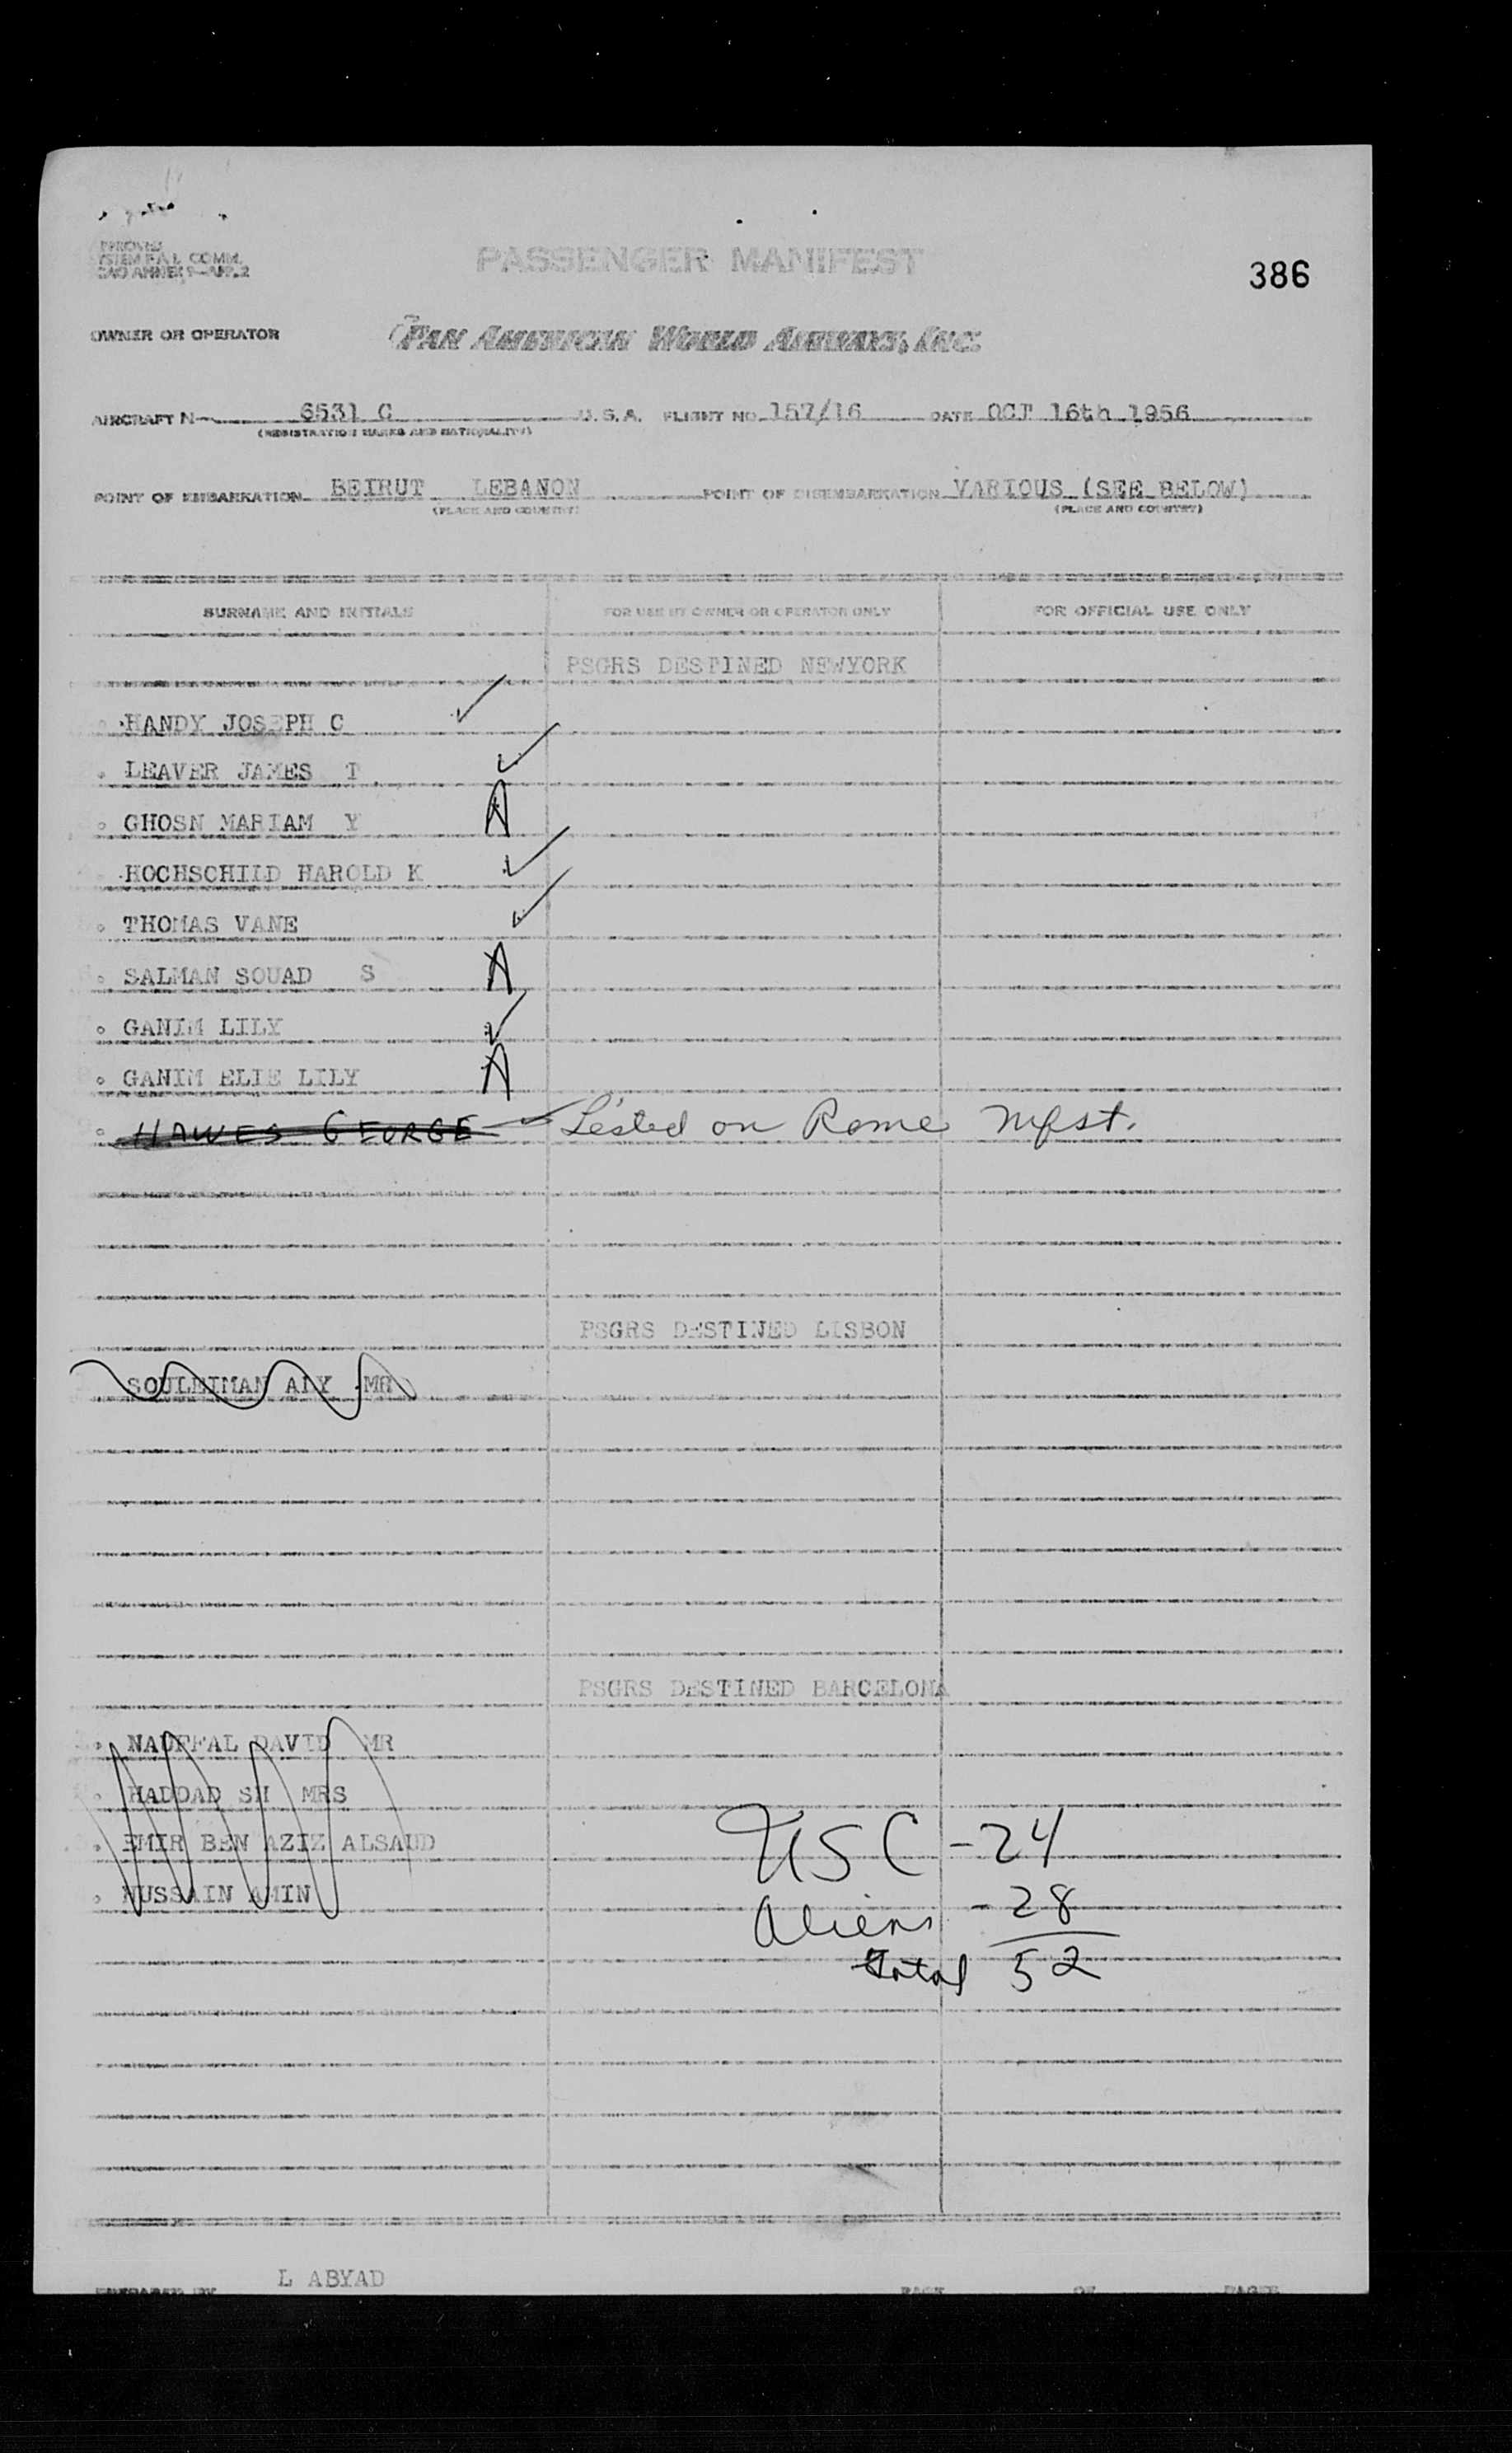 PASSENGER MANIFEST
386
OWNER OR OPERATOR PAN AMERICAN WORLD AIRWAYS, INC.
AIRCRAFT N 6531 C U.S.A. FLIGHT NO. 157/16 DATE OCT 16th 1956
(REGISTRATION MARKS AND NATIONALITY)
POINT OF EMBARKATION BEIRUT LEBANON POINT OF DISEMBARKATION VARIOUS (SEE BELOW)
(PLACE AND COUNTRY) (PLACE AND COUNTRY)
SURNAME AND INITIALS FOR USE BY OWNER OR OPERATOR ONLY FOR OFFICIAL USE ONLY
PSGRS DESTINED NEWYORK
HANDY JOSEPH C ✓
LEAVER JAMES T ✓
GHOSN MARIAM Y A
HOCHSCHILD HAROLD K ✓
THOMAS VANE ✓
SALMAN SOUAD S A
GANIM LILY ✓
GANIM ELIE LILY A
HAWES GEORGE Listed on Rome Mfst.
PSGRS DESTINED LISBON
SOULEIMAN ALY MR
PSGRS DESTINED BARCELONA
NAUFFAL DAVID MR
HADDAD SH MRS
EMIR BEN AZIZ ALSAUD
HUSSAIN AMIN
USC - 24
Aliens - 28
Total 52
L ABYAD
PREPARED BY PAGE OF PAGES